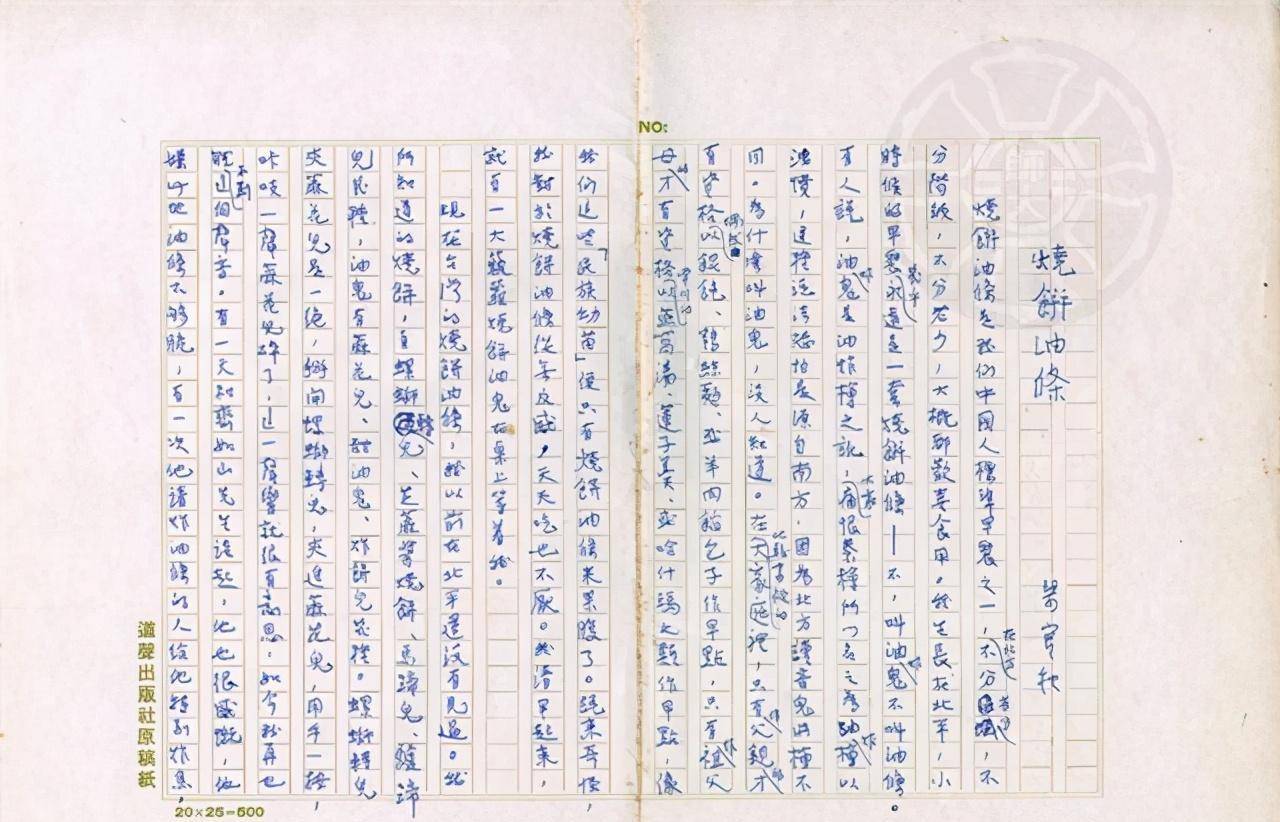 NO:
燒餅油條　梁實秋
燒餅油條是我們中國人標準早餐之一,在北方不分省分,不
分階級,不分老少,大概都歡喜食用。我生長在北平,小
時候的早餐幾乎永遠是一套燒餅油條——不,叫油炸鬼不叫油條。
有人說,油炸鬼是油炸檜之訛,大家痛恨秦檜所以名之為油炸檜以
洩憤,這種說法恐怕是源自南方,因為北方讀音鬼與檜不
同。為什麼叫油鬼,沒人知道。在比較富裕的大家庭裡,只有作父親的才
有資格偶或以餛飩、鵝絲麵、或羊肉餡包子作早點,只有作祖父
母的才有資格常以燕窩湯、蓮子羹、或哈什瑪之類作早點,像
我們這些「民族幼苗」便只有燒餅油條來果腹了。說來奇怪,
我對於燒餅油條從無反感,天天吃也不厭。我清早起來,
就有一大簸籮燒餅油鬼在桌上等着我。
現在台灣的燒餅油條,我以前在北平還沒有見過。我
所知道的燒餅,有螺螄轉兒、芝蔴醬燒餅、馬蹄兒、驢蹄
兒幾種,油鬼有蔴花兒、甜油鬼、炸餅兒幾種。螺螄轉兒
夾蔴花兒是一絕,掰開螺螄轉兒,夾進蔴花兒,用手一按,
咔吱一聲蔴花兒碎了,這一聲響就很有意思,如今我再也
聽不到這個聲音。有一天和齊如山先生談起,他也很感慨,他
嫌此地油條不夠脆,有一次他請炸油條的人給他特別炸焦,
適聲出版社原稿紙
20×25=500